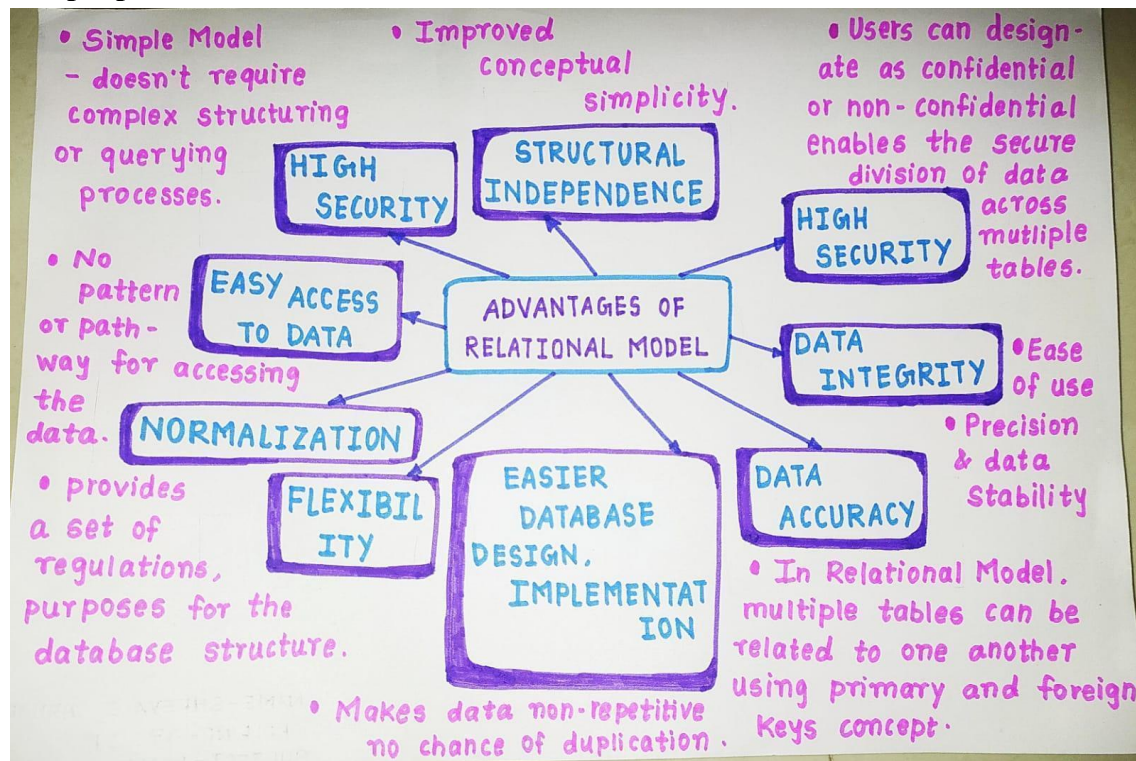 • Simple Model
- doesn't require
complex structuring
or querying
processes.
• Improved
conceptual
simplicity.
• Users can design-
ate as confidential
or non-confidential
enables the secure
division of data
across
mutliple
tables.
HIGH
SECURITY
STRUCTURAL
INDEPENDENCE
HIGH
SECURITY
• No
pattern
or path-
way for accessing
the
data.
EASY ACCESS
TO DATA
ADVANTAGES OF
RELATIONAL MODEL
DATA
INTEGRITY
• Ease
of use
NORMALIZATION
• Precision
& data
stability
• provides
a set of
regulations,
purposes for the
database structure.
FLEXIBIL
ITY
EASIER
DATABASE
DESIGN,
IMPLEMENTAT
ION
DATA
ACCURACY
• In Relational Model,
multiple tables can be
related to one another
using primary and foreign
keys concept.
• Makes data non-repetitive
no chance of duplication.